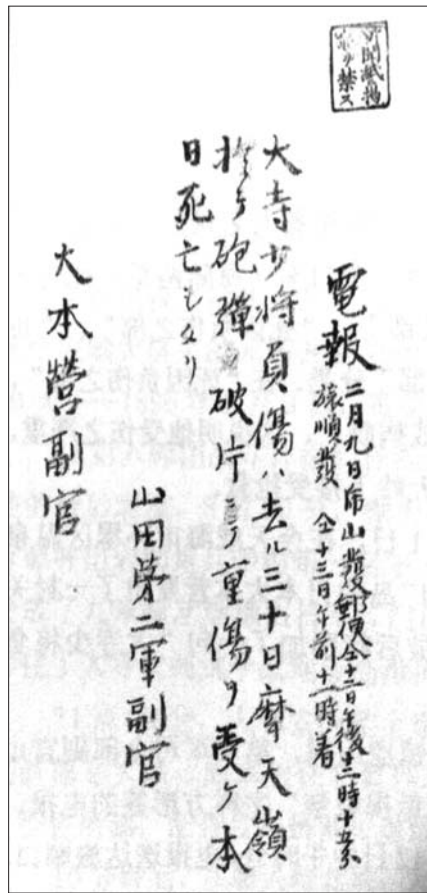 新聞紙掲
載ヲ禁ス
電報
二月九日帝山發郵便仝十二日午後十二時十五分
旅順發 仝十三日午前十一時着
大寺少将負傷、去ル三十日摩天嶺
於テ砲彈ノ破片ニテ重傷ヲ受ケ本
日死亡セリ
山田第二軍副官
大本營副官